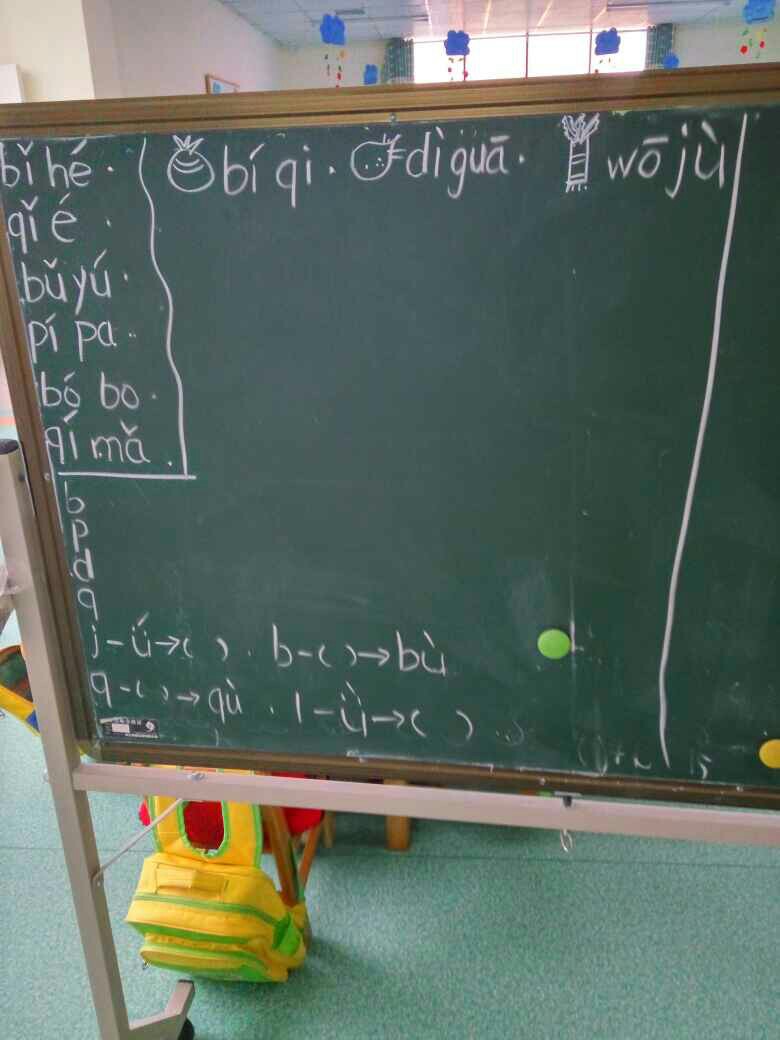 bǐ hé.
qǐ é.
bǔ yú.
pí pa.
bó bo.
qí mǎ.
bí qi. dì guā. wō jù
b
p
d
q
j-ú→( ). b-( )→bù
q-( )→qù. l-ǜ→( )